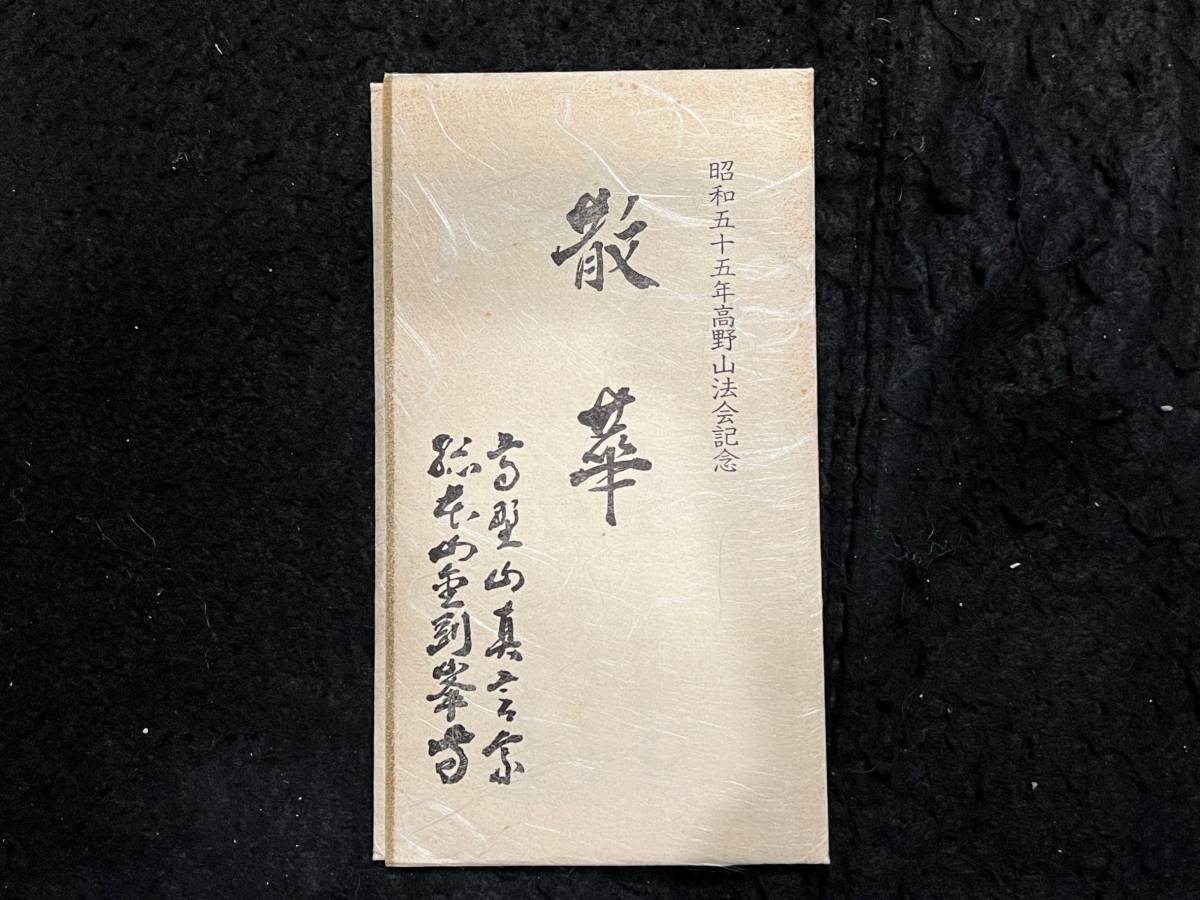 昭和五十五年高野山法会記念
散華
高野山真言宗
総本山金剛峯寺